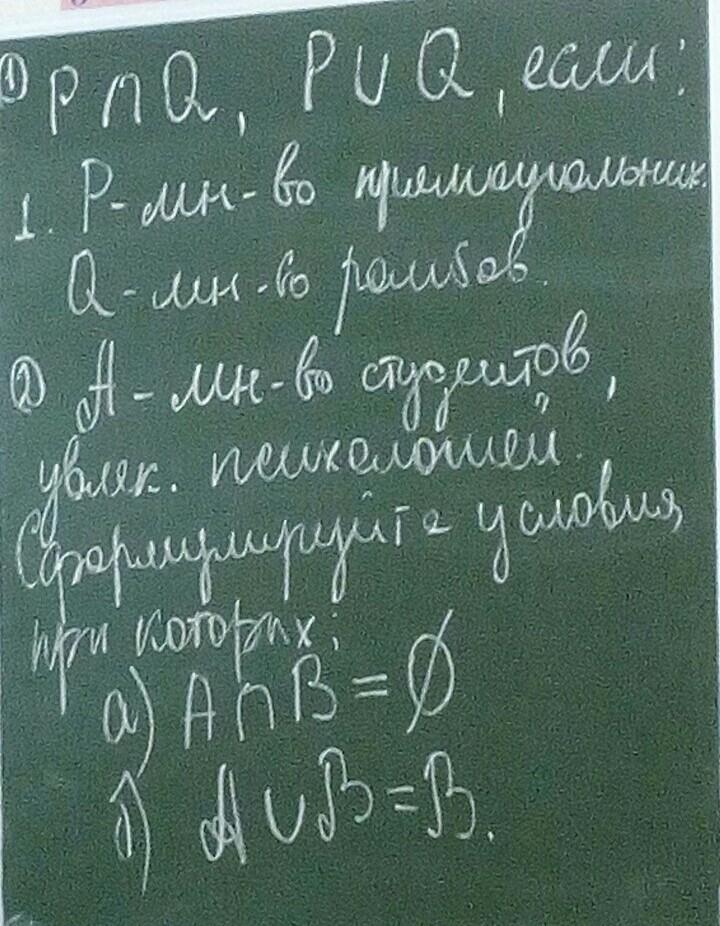 ① P∩Q, P∪Q, если:
1. P-мн-во прямоугольник.
Q-мн-во ромбов.
② A-мн-во студентов,
увлек. психологией.
Сформулируйте условия,
при которых:
а) A∩B=∅
б) A∪B=B.